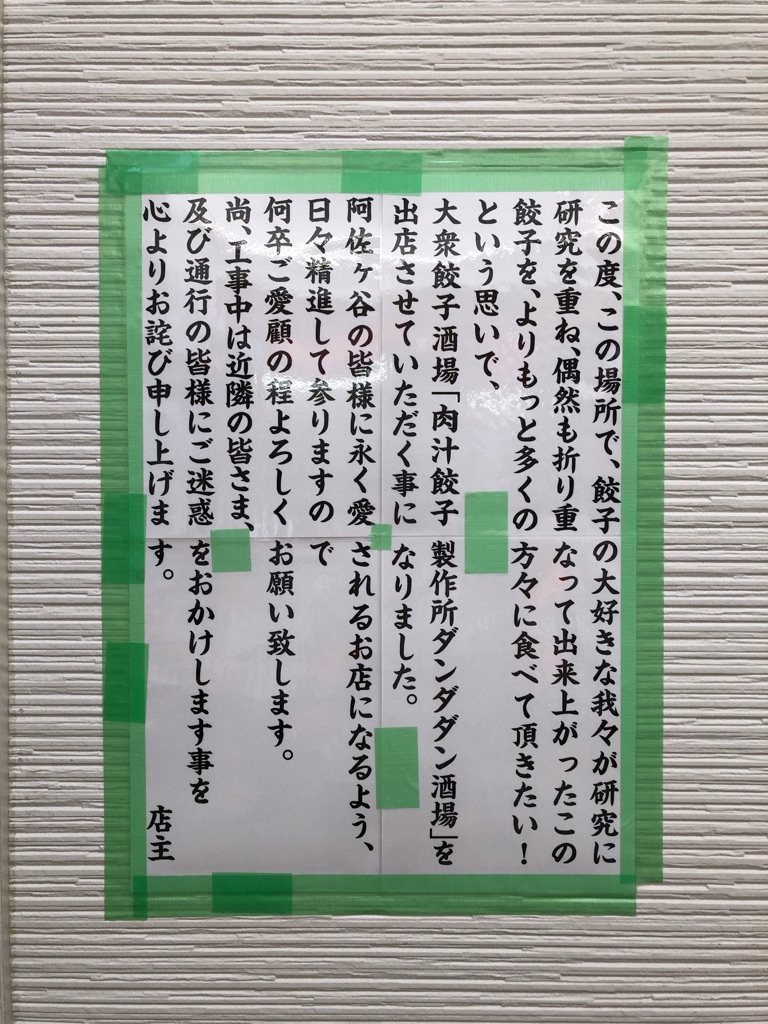 この度、この場所で、餃子の大好きな我々が研究に
研究を重ね、偶然も折り重なって出来上がったこの
餃子を、よりもっと多くの方々に食べて頂きたい！
という思いで、
大衆餃子酒場「肉汁餃子製作所ダンダダン酒場」を
出店させていただく事になりました。
阿佐ヶ谷の皆様に永く愛されるお店になるよう、
日々精進して参りますので
何卒ご愛顧の程よろしくお願い致します。
尚、工事中は近隣の皆さま、
及び通行の皆様にご迷惑をおかけします事を
心よりお詫び申し上げます。
店主